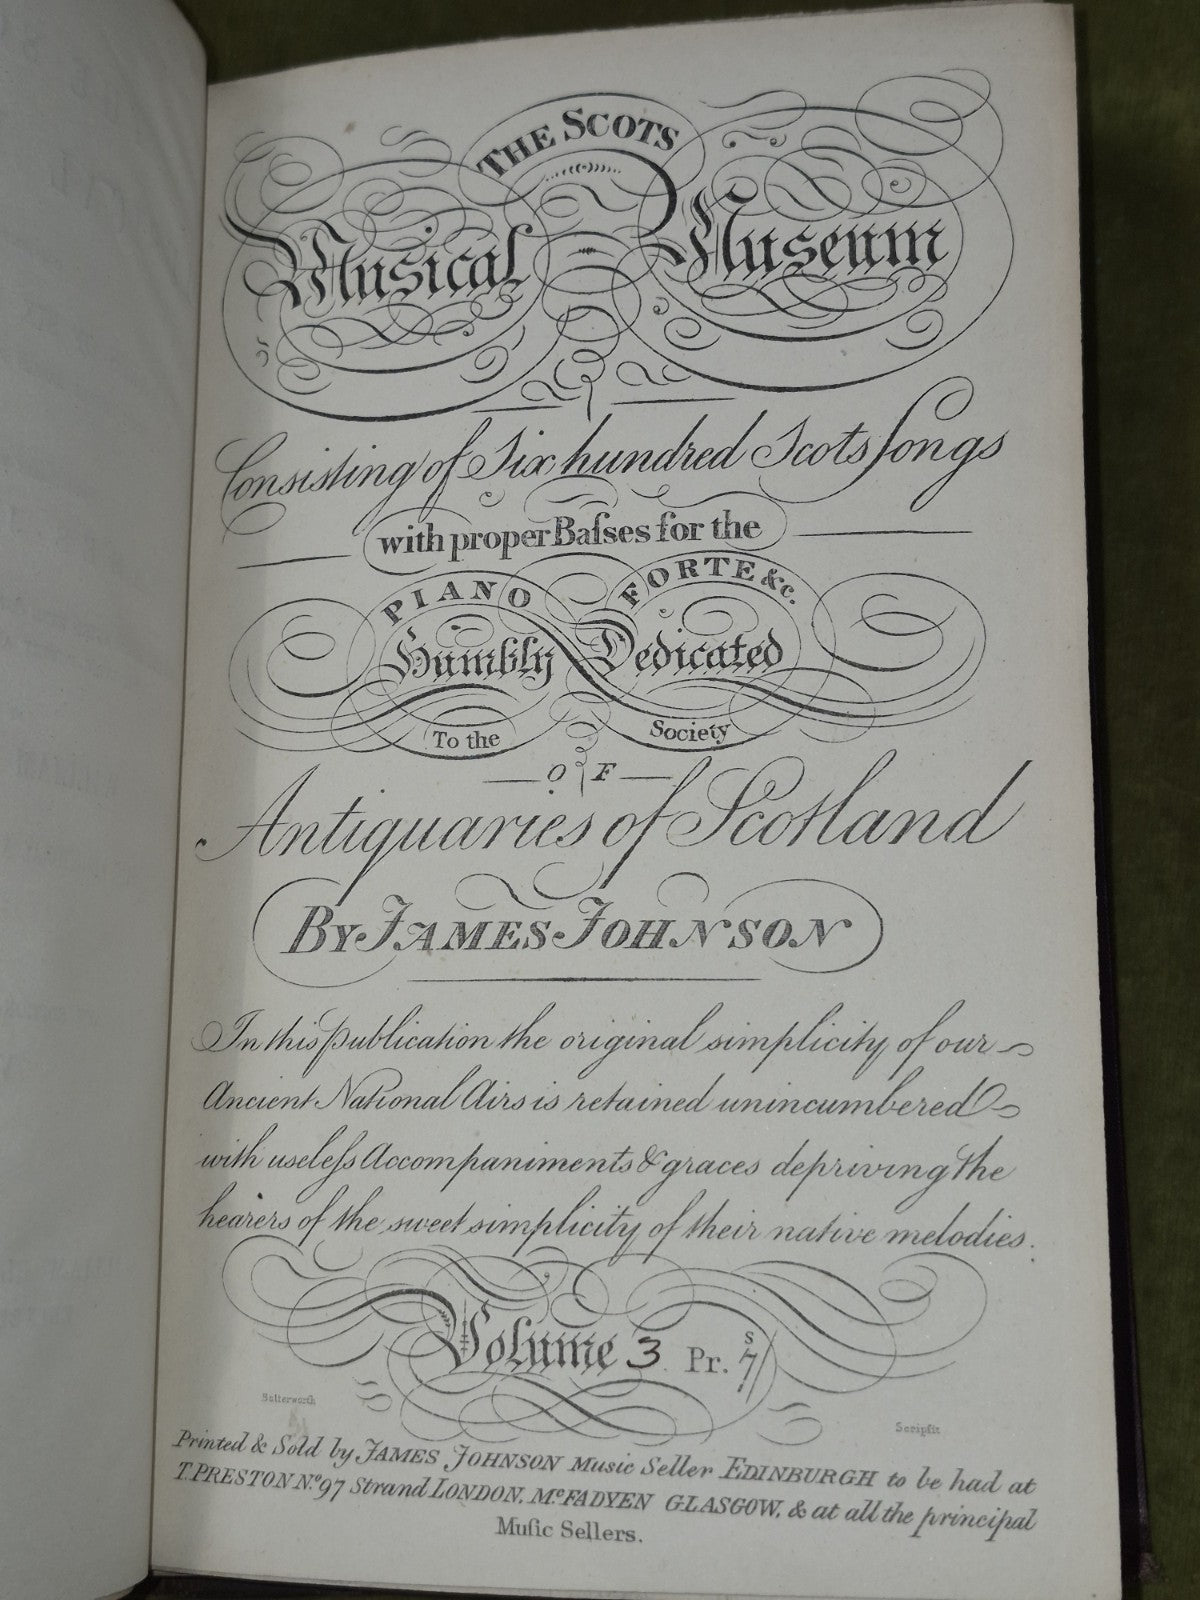 THE SCOTS
Musical Museum
Consisting of Six hundred Scots Songs
with proper Baſses for the
PIANO FORTE &c.
Humbly Dedicated
To the Society
OF
Antiquaries of Scotland
By JAMES JOHNSON
In this publication the original simplicity of our
Ancient National Airs is retained unincumbered
with useleſs Accompaniments & graces depriving the
hearers of the sweet simplicity of their native melodies.
Volume 3 Pr. 7/s
Butterworth Scripsit
Printed & Sold by JAMES JOHNSON Music Seller EDINBURGH to be had at
T. PRESTON No. 97 Strand LONDON, McFADYEN GLASGOW, & at all the principal
Muſic Sellers.